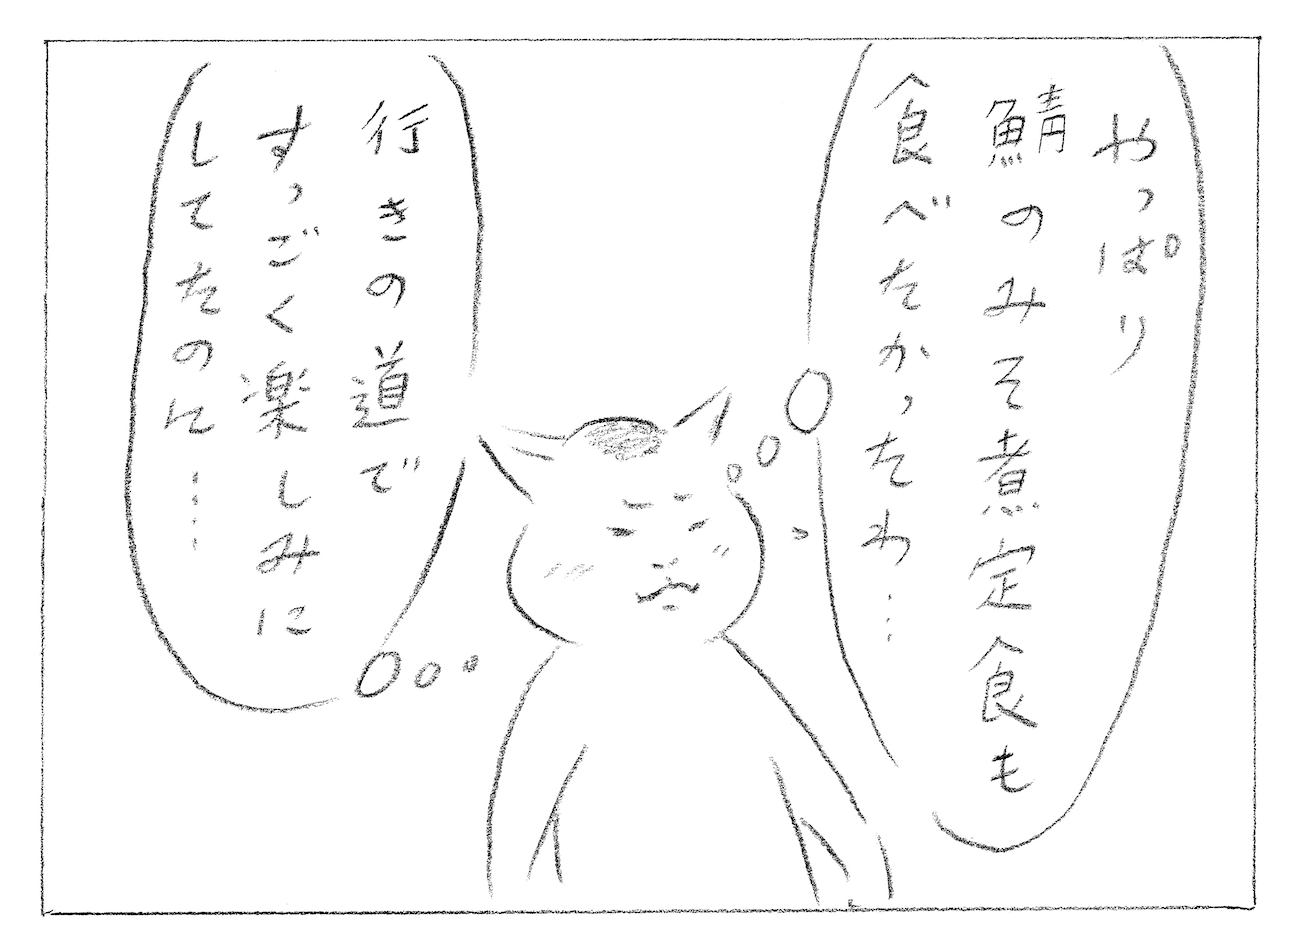 やっぱり
鯖のみそ煮定食も
食べたかったわ…
行きの道で
すっごく楽しみに
してたのに……